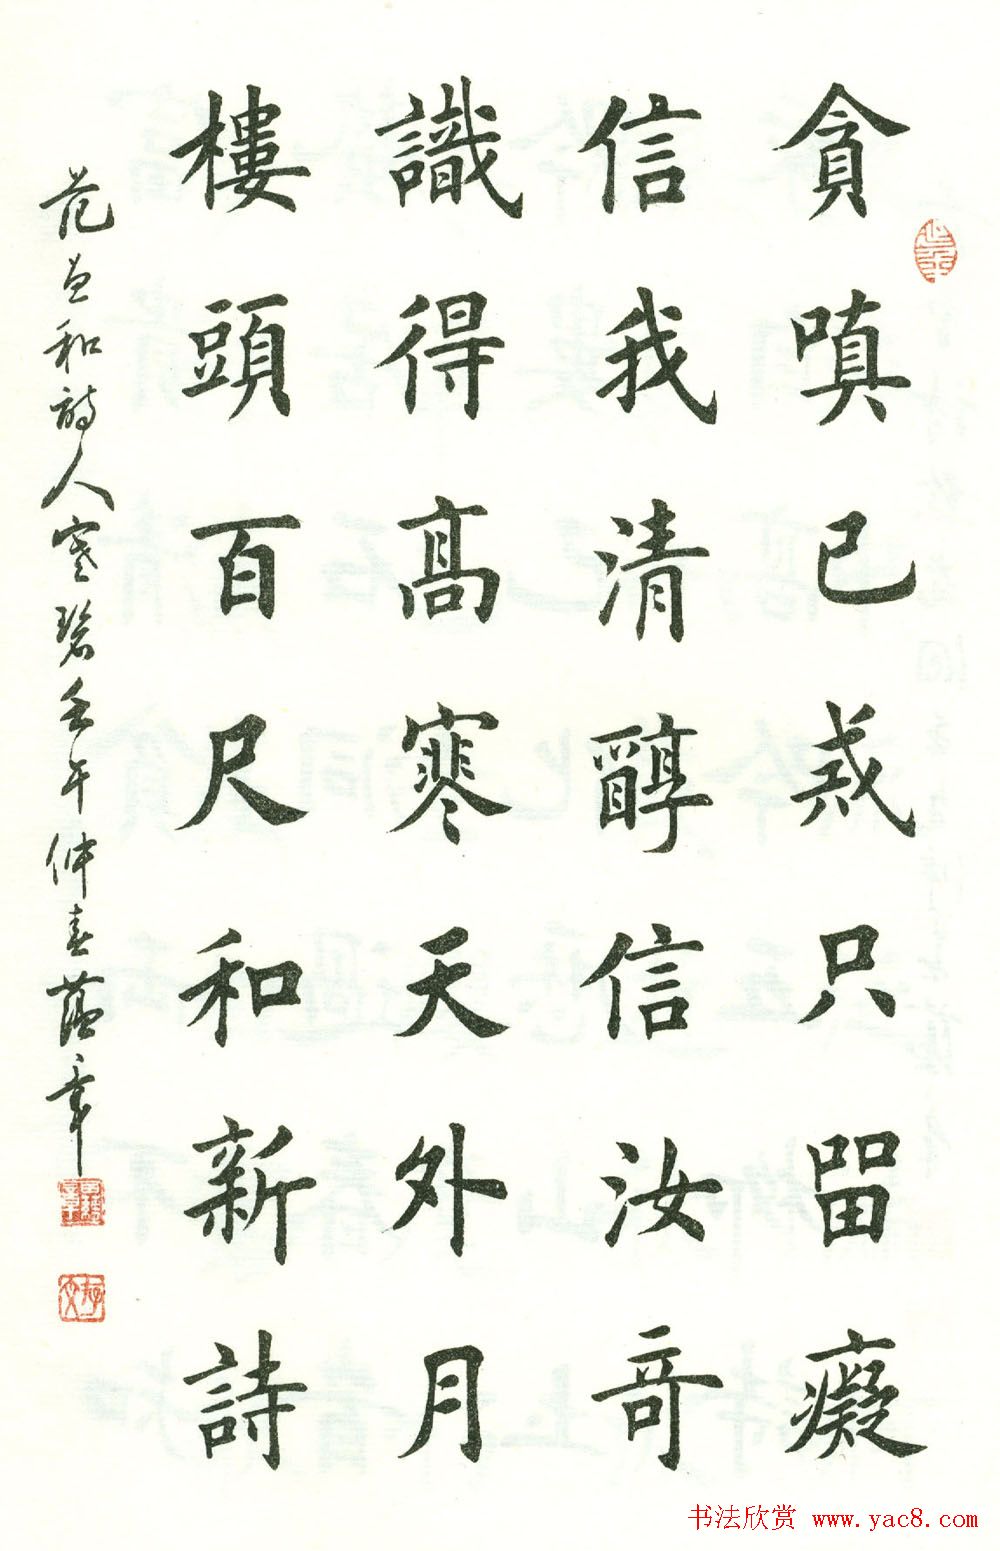 貪嗔已戒只留癡
信我清醇信汝奇
識得高寒天外月
樓頭百尺和新詩
范曾和詩人寒碧壬午仲春蘊章
书法欣赏 www.yac8.com